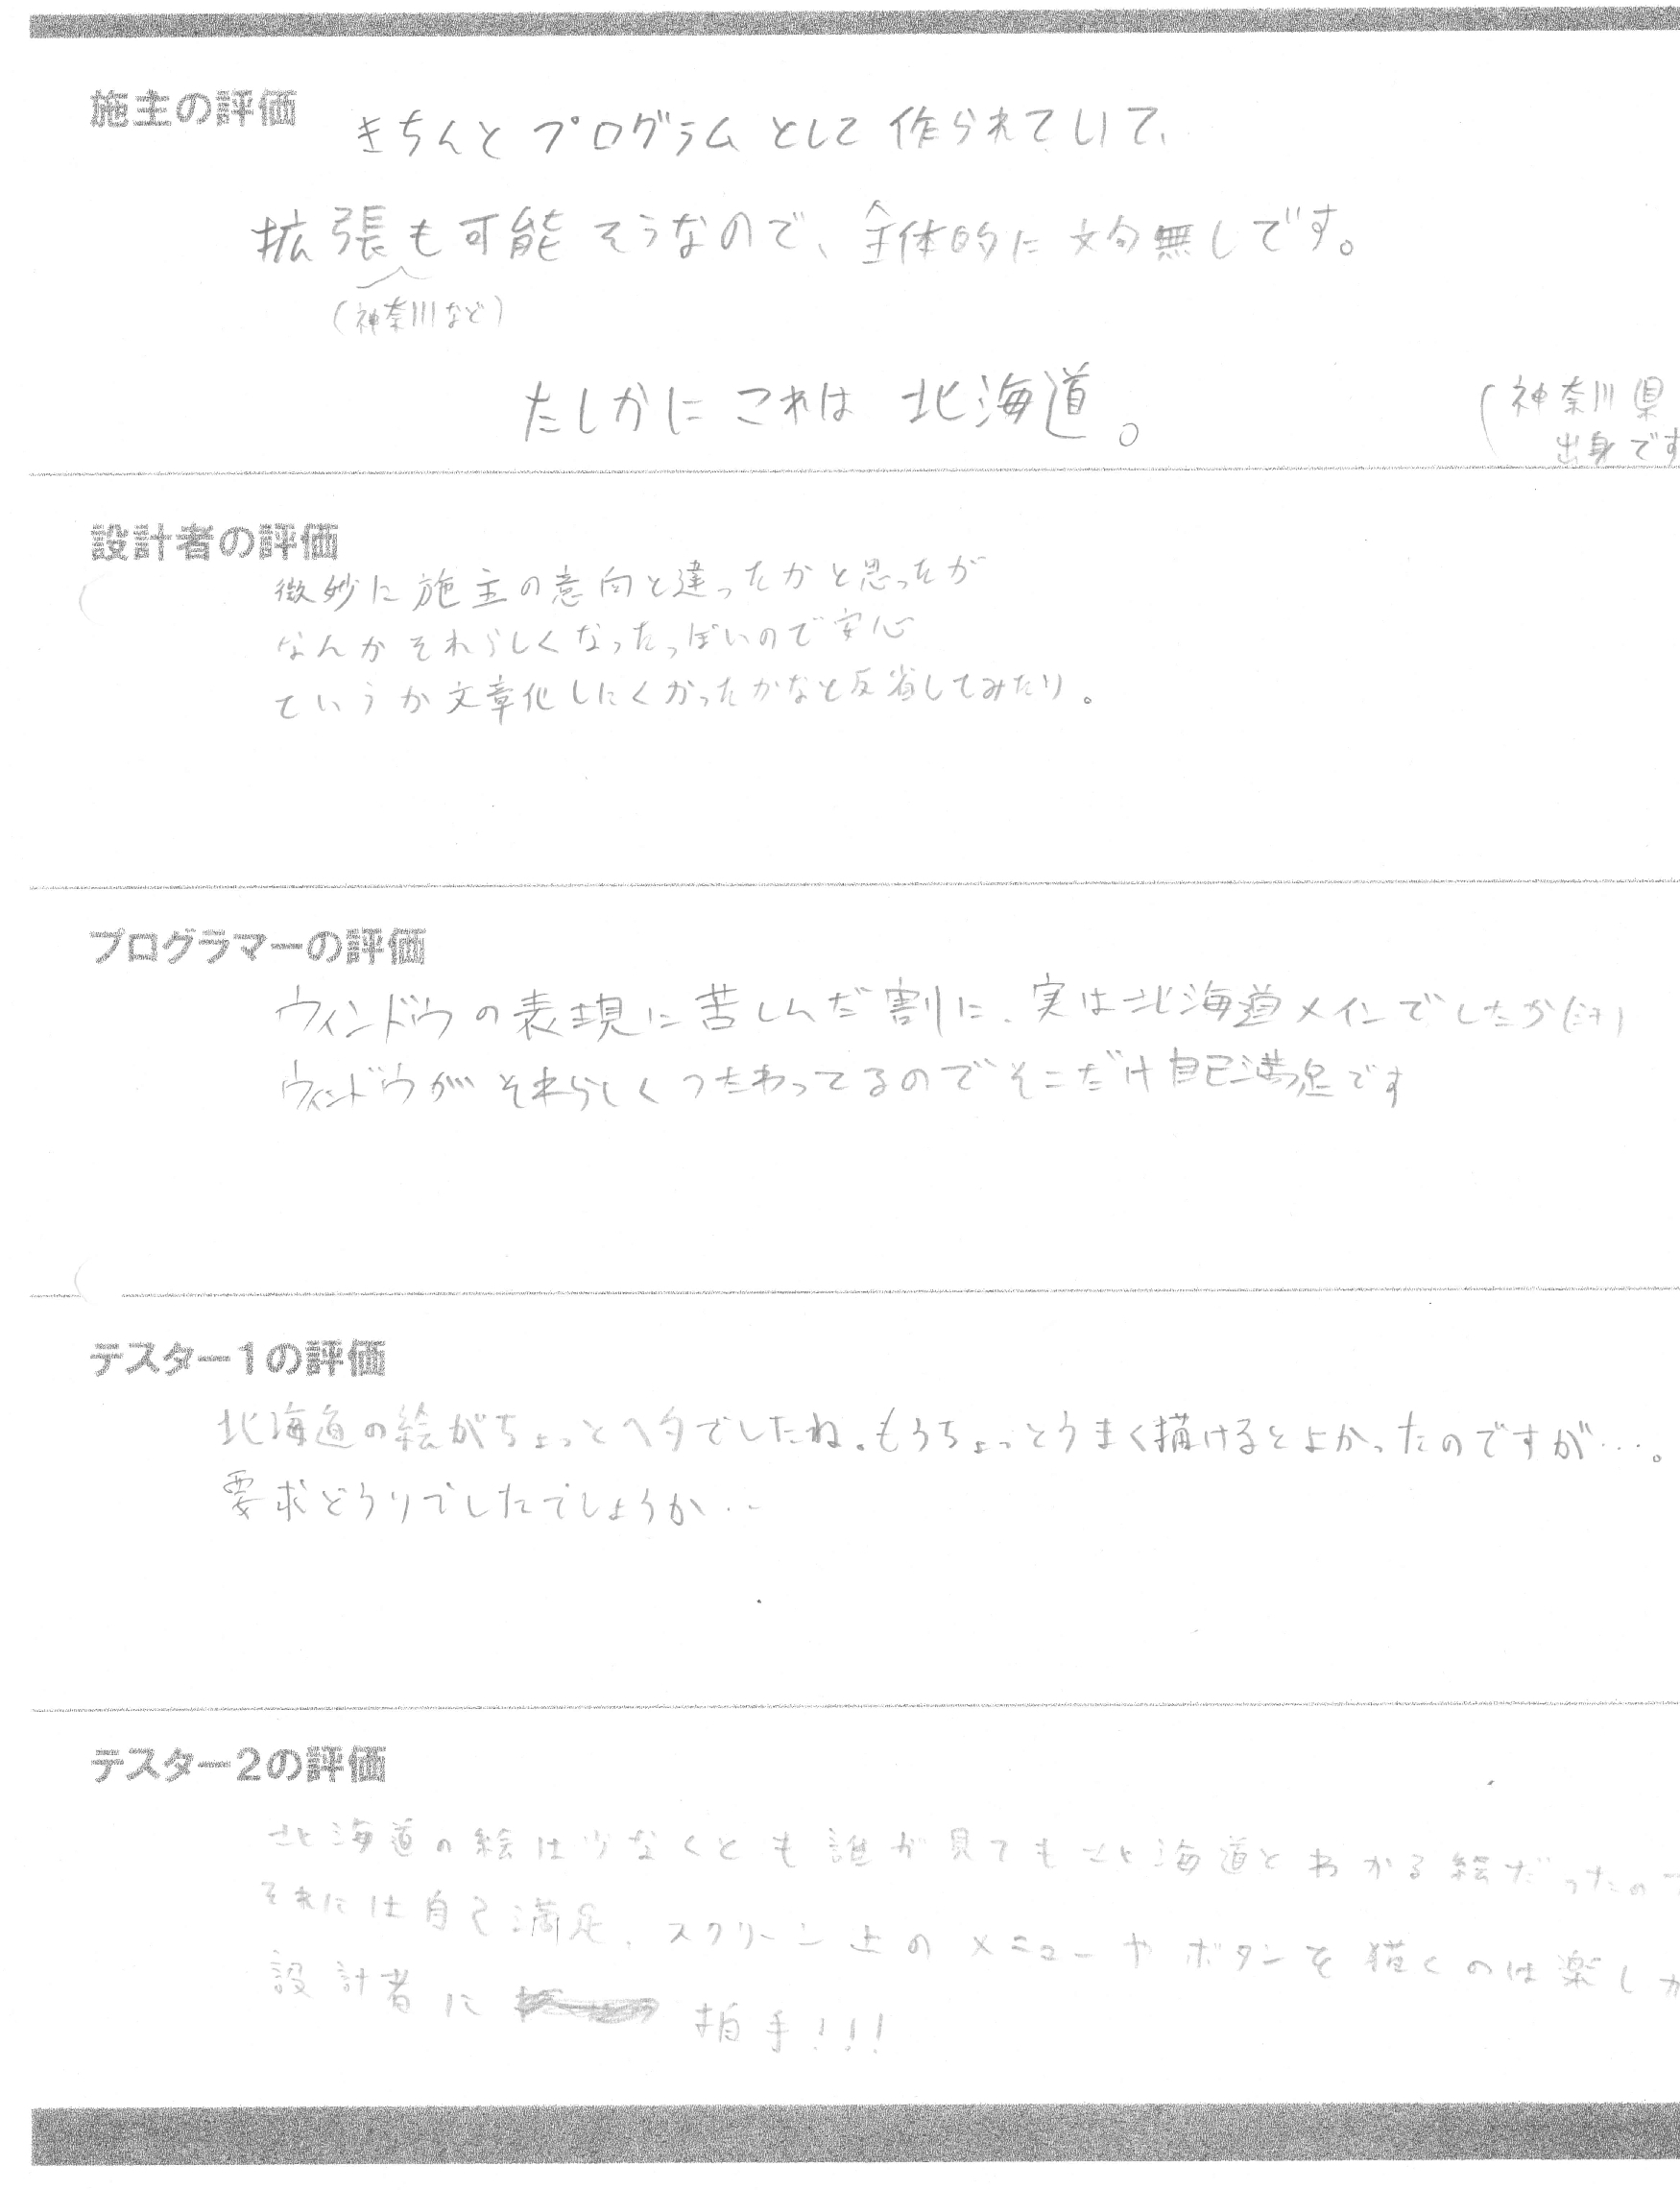 施主の評価
きちんとプログラムとして作られていて、
拡張も可能そうなので、全体的に文句無しです。
(神奈川など)
たしかにこれは北海道。
(神奈川県
出身です
設計者の評価
微妙に施主の意向と違ったかと思ったが
なんかそれらしくなったっぽいので安心
ていうか文章化しにくかったかなと反省してみたり。
プログラマーの評価
ウィンドウの表現に苦しんだ割に、実は北海道メインでしたか
ウィンドウがそれらしくつたわってるのでそこだけ自己満足です
テスター1の評価
北海道の絵がちょっとヘタでしたね。もうちょっとうまく描けるとよかったのですが…。
要求どうりでしたでしょうか…
テスター2の評価
北海道の絵は少なくとも誰が見ても北海道とわかる絵だったので
それには自己満足、スクリーン上のメニューやボタンを描くのは楽しか
設計者に 拍手!!!